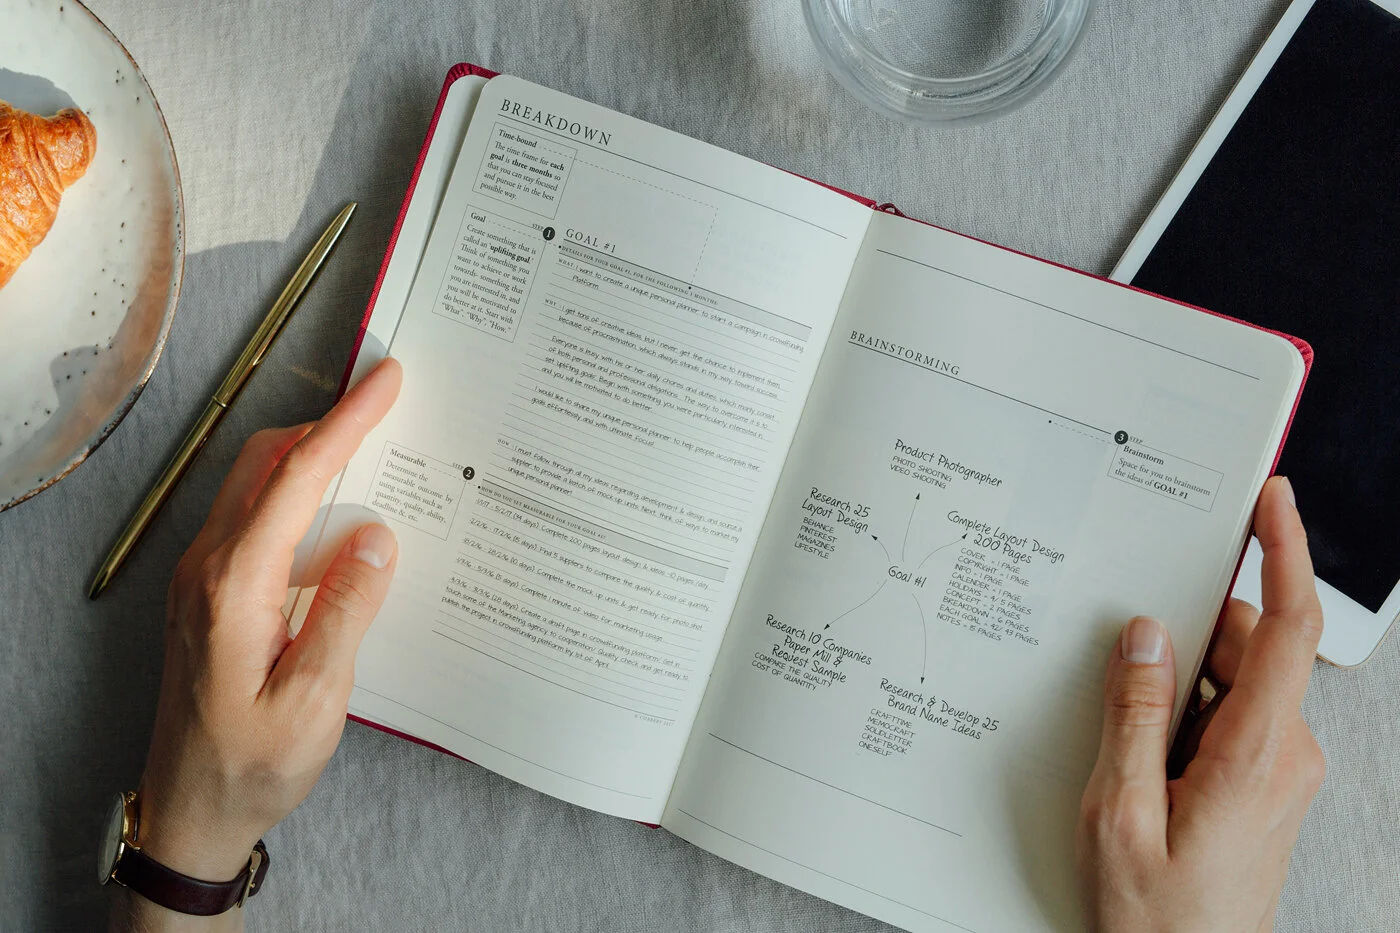 BREAKDOWN
Time-bound
The time frame for each
goal is three months so
that you can stay focused
and pursue it in the best
possible way.
Goal
Create something that is
called an "uplifting goal."
Think of something you
want to achieve or work
towards- something that
you are interested in, and
you will be motivated to
do better at it. Start with
"What", "Why", "How."
STEP 1
GOAL #1
DETAILS FOR YOUR GOAL #1, FOR THE FOLLOWING 3 MONTHS
WHAT: I want to create a unique personal planner to start a campaign in crowdfunding
Platform.
WHY: I get tons of creative ideas, but I never get the chance to implement them
because of procrastination, which always stands in my way toward success.
Everyone is busy with his or her daily chores and duties, which mainly consist
of both personal and professional obligations. The way to overcome it is to
set uplifting goals. Begin with something you were particularly interested in
and you will be motivated to do better.
I would like to share my unique personal planner to help people accomplish their
goals effortlessly and with ultimate focus.
HOW: I must follow through all my ideas regarding development & design, and source a
supplier to provide a batch of mock up units. Next, think of ways to market my
unique personal planner!
Measurable
Determine the
measurable outcome by
using variables such as
quantity, quality, ability,
deadline &, etc.
STEP 2
HOW DO YOU SET MEASURABLE FOR YOUR GOAL #1?
(14 days). Complete 200 pages layout design & ideas -10 pages/day
2/2/16 - 17/2/16 (15 days). Find 5 suppliers to compare the quality & cost of quantity.
18/2/16 - 28/2/16 (10 days). Complete the mock up units & get ready for photo shot
1/3/16 - 5/3/16 (5 days). Complete 1 minute of video for marketing usage.
4/3/16 - 31/3/16 (28 days). Create a draft page in crowdfunding platform/ Get in
touch some of the Marketing agency to cooperation/ Quality check and get ready to
publish the project in crowdfunding platform by 1st of April.
BRAINSTORMING
3 STEP
Brainstorm
Space for you to brainstorm
the ideas of GOAL #1
Product Photographer
PHOTO SHOOTING
VIDEO SHOOTING
Research 25
Layout Design
BEHANCE
PINTEREST
MAGAZINES
LIFESTYLE
Complete Layout Design
200 Pages
COVER = 1 PAGE
COPYRIGHT = 1 PAGE
INFO = 1 PAGE
CALENDER = 1 PAGE
HOLIDAYS = 4/ 5 PAGES
CONCEPT = 2 PAGES
BREAKDOWN = 6 PAGES
EACH GOAL = 42/ 43 PAGES
NOTES = 15 PAGES
Goal #1
Research 10 Companies
Paper Mill &
Request Sample
COMPARE THE QUALITY
COST OF QUANTITY
Research & Develop 25
Brand Name Ideas
CRAFTTIME
MEMOCRAFT
SOLIDLETTER
CRAFTBOOK
ONESELF